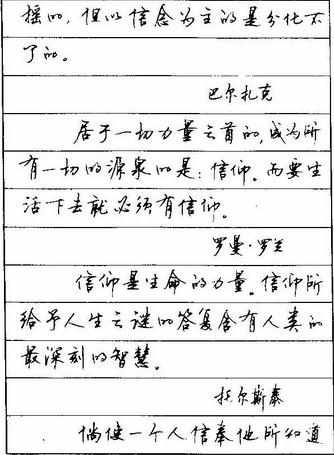 摇的，但以信念为主的是分化不
了的。
巴尔扎克
居于一切力量之首的，成为所
有一切的源泉的是：信仰。而要生
活下去就必须有信仰。
罗曼·罗兰
信仰是生命的力量。信仰所
给予人生之谜的答复含有人类的
最深刻的智慧。
托尔斯泰
倘使一个人信奉他所知道